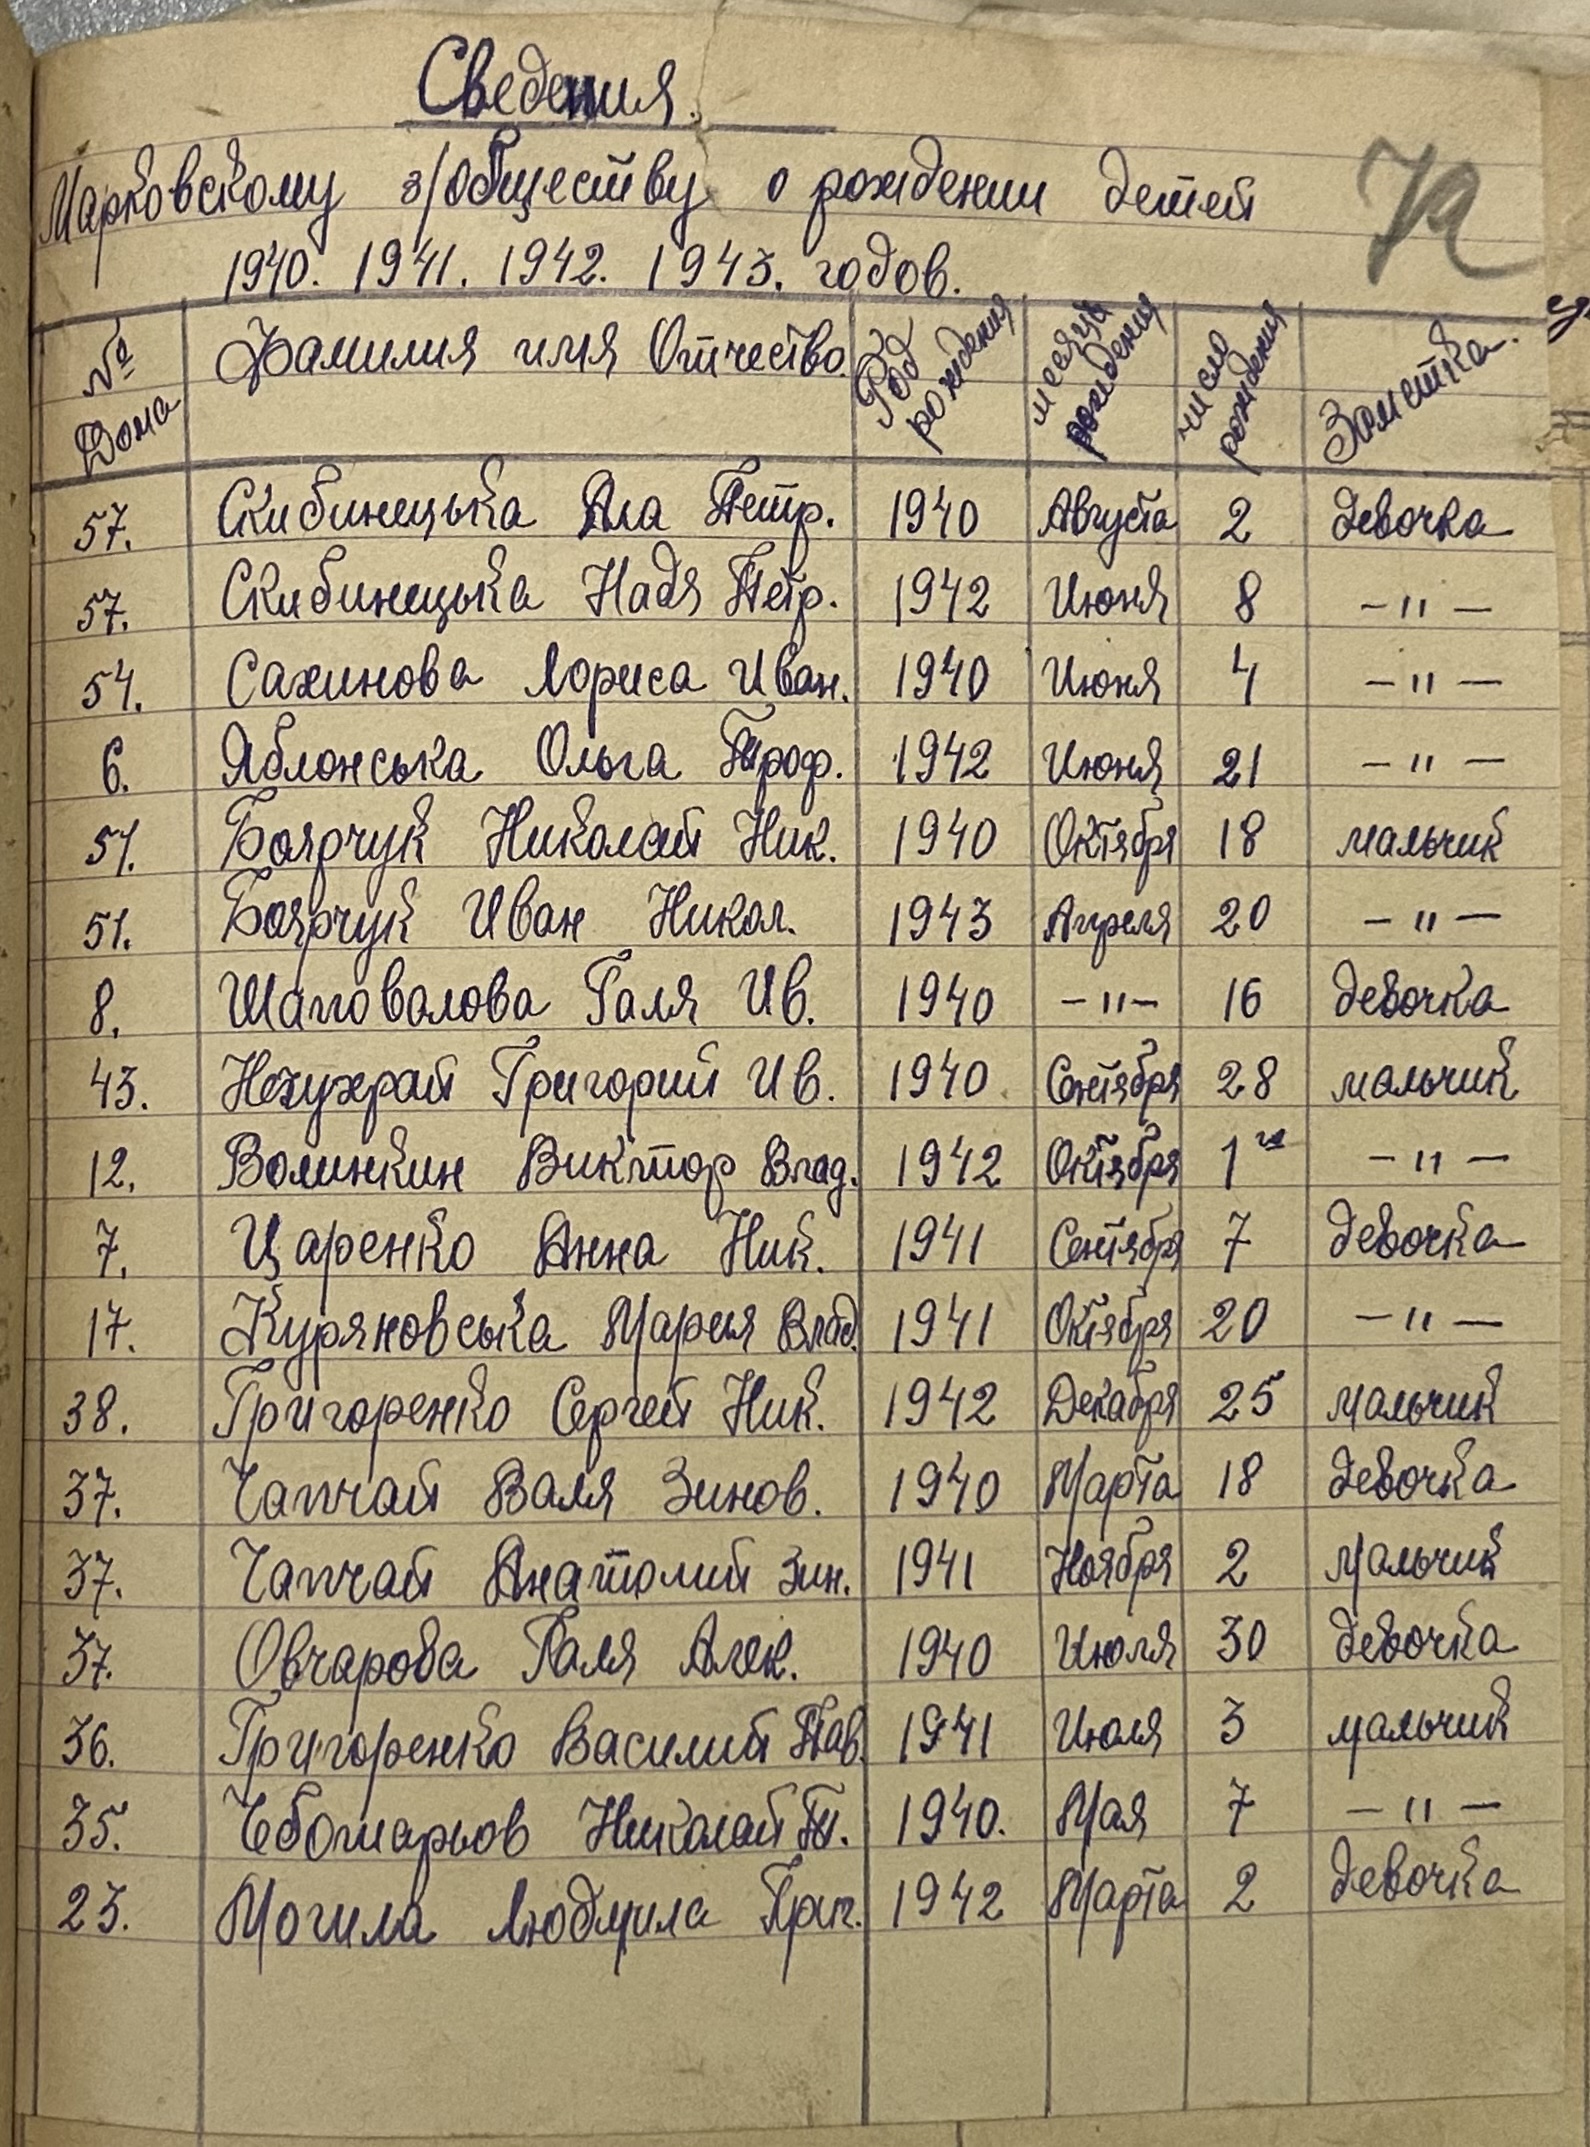 Сведения.
Марковскому з/обществу о рождении детей
1940. 1941. 1942. 1943. годов.
№ Дома Фамилия имя Отчество Год рождения месяць рождения число рождения Заметка.
57. Скибинецька Ала Петр. 1940 Августа 2 девочка
57. Скибинецька Надя Петр. 1942 Июня 8 — " —
54. Сахинова Лориса Иван. 1940 Июня 4 — " —
6. Яблонська Ольга Троф. 1942 Июня 21 — " —
51. Боярчук Николай Ник. 1940 Октября 18 мальчик
51. Боярчук Иван Никол. 1943 Апреля 20 — " —
8. Шаповалова Галя Ив. 1940 — " — 16 девочка
43. Нехухрай Григорий Ив. 1940 Сентября 28 мальчик
12. Волинкин Виктор Влад. 1942 Октября 1го — " —
7. Царенко Анна Ник. 1941 Сентября 7 девочка
17. Куряновська Мария Влад. 1941 Октября 20 — " —
38. Григоренко Сергей Ник. 1942 Декабря 25 мальчик
37. Чапчай Валя Зинов. 1940 Марта 18 девочка
37. Чапчай Анатолий Зин. 1941 Ноября 2 мальчик
37. Овчарова Галя Алек. 1940 Июля 30 девочка
36. Григоренко Василий Пав. 1941 Июля 3 мальчик
35. Чеботарьов Николай 1940. Мая 7 — " —
23. Могила Людмила Григ. 1942 Марта 2 девочка